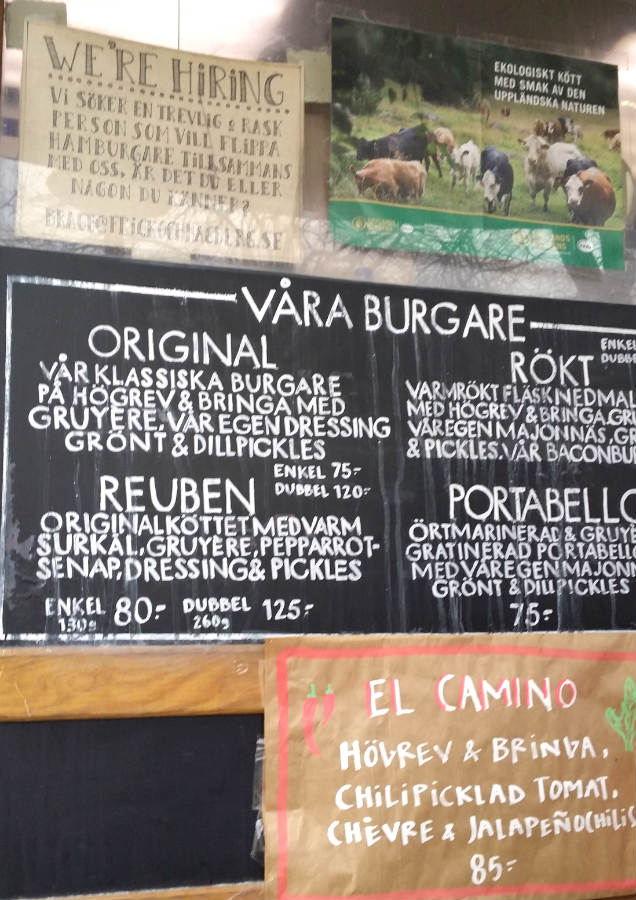 WE'RE HiRiNG
Vi SÖKER EN TREVLIG & RASK
PERSON SOM VILL FLIPPA
HAMBURGARE TILLSAMMANS
MED OSS. ÄR DET DU ELLER
NÅGON DU KÄNNER?
EKOLOGISKT KÖTT
MED SMAK AV DEN
UPPLÄNDSKA NATUREN
VÅRA BURGARE
ORIGINAL
VÅR KLASSISKA BURGARE
PÅ HÖGREV & BRINGA MED
GRUYERE, VÅR EGEN DRESSING
GRÖNT & DILLPICKLES
ENKEL 75:-
DUBBEL 120:-
ENKEL
DUBBE
RÖKT
VARMRÖKT FLÄSK NEDMAL
MED HÖGREV & BRINGA, GRU
VÅR EGEN MAJONNÄS, GR
& PICKLES. VÅR BACONBU
REUBEN
ORIGINALKÖTTET MED VARM
SURKÅL, GRUYERE, PEPPARROT-
SENAP, DRESSING & PICKLES
ENKEL 80:- DUBBEL 125:-
130g 260g
PORTABELLO
ÖRTMARINERAD & GRUYE
GRATINERAD PORTABELLO
MED VÅR EGEN MAJONN
GRÖNT & DILLPICKLES
75:-
EL CAMINO
HÖGREV & BRINGA,
CHILIPICKLAD TOMAT,
CHÈVRE & JALAPEÑOCHILIS
85:-